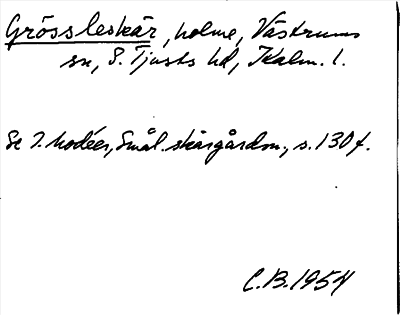 Grössleskär, holme, Västrums
sn, S. Tjusts hd, Kalm. l.
Se I. Modéer, Smål. skärgården, s. 130 f.
C.B. 1954